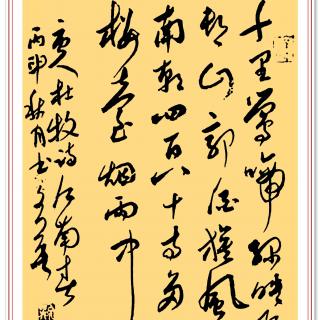 千里莺啼绿映
村山郭酒旗风
南朝四百八十寺多
楼台烟雨中
唐人杜牧诗江南春
丙申秋月书